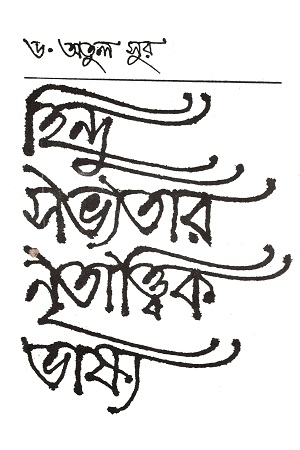 ড. অতুল সুর
হিন্দু
সভ্যতার
নৃতাত্ত্বিক
ভাষ্য